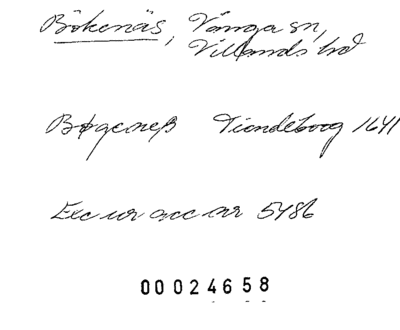 Bökenäs, Vånga sn,
Villands hd
Bøgeneß Tiendeboog 1641
Exc ur acc nr 5486
00024658